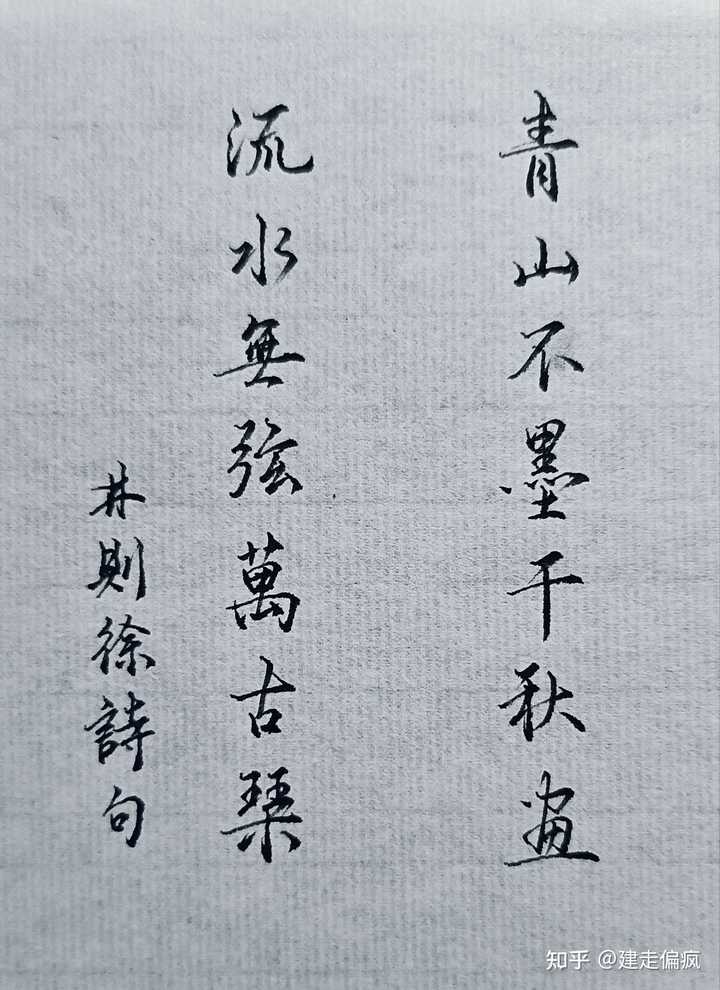 青山不墨千秋画
流水無弦萬古琹
林則徐詩句
知乎 @建走偏疯